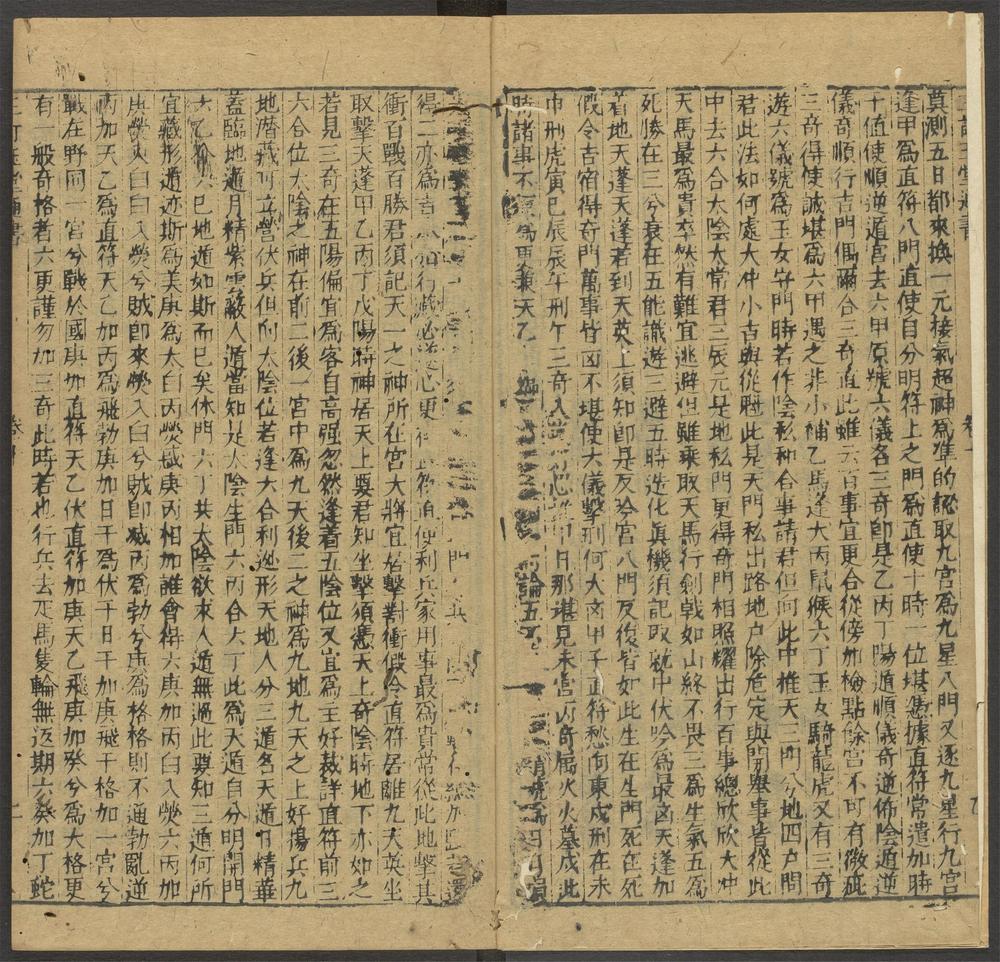 莫測五日都來換一元接氣超神為准的認取九宮為九星八門又逐九星行九宮
逢甲為直符八門直使自分明符上之門為直使十時一位堪憑據直符常遣加時
十值使順逆遁宮去六甲原號六儀名三奇即是乙丙丁陽遁順儀奇逆佈陰遁逆
儀奇順行吉門偶爾合三奇直此雖云百事宜更合從傍加檢點餘宮不可有微疵
三奇得使誠堪為六甲遇之非小補乙馬逢犬丙鼠候六丁玉女騎龍虎又有三奇
遊六儀號為玉女守門時若作陰私和合事請君但向此中推天三門兮地四户問
君此法如何處太冲小吉與從魁此是天門私出路地户除危定與開舉事皆從此
中去六合太陰太常君三辰元是地私門更得奇門相照耀出行百事總欣欣太冲
天馬最為貴卒然有難宜逃避但雖乘取天馬行劍戟如山終不畏三為生氣五為
死勝在三兮衰在五能識遊三避五時造化真機須記取就中伏吟為最凶天蓬加
着地天蓬天蓬若到天英上須知即是反吟宮八門反復皆如此生在生門死在死
假令吉宿得奇門萬事皆凶不堪使六儀擊刑何太凶甲子直符愁向東戌刑在未
申刑虎寅巳辰辰午刑午三奇入 日那堪見未宮丙奇屬火火墓戌此
時諸事不 為更兼天乙 論五
得二亦為吉 行藏必遂心更 直使利兵家用事最為貴常從此地擊其
衝百戰百勝君須記天一之神所在宮大將宜居擊對衝假令直符居離九天英坐
取擊天蓬甲乙丙丁戊陽時神居天上要君知坐擊須憑天上奇陰時地下亦如之
若見三奇在五陽偏宜為客自高强忽然逢着五陰位又宜為主好裁詳直符前三
六合位太陰之神在前二後一宮中為九天後二之神為九地九天之上好揚兵九
地潛藏可立營伏兵但向太陰位若逢六合利迯形天地人分三遁名天遁月精華
蓋臨地遁月精紫雲蔽人遁當知是太陰生門六丙合六丁此為天遁自分明開門
六乙 六己地遁如斯而已矣休門六丁共太陰欲求人遁無過此要知三遁何所
宜藏形遁迹斯為美庚為太白丙熒惑庚丙相加誰會得六庚加丙白入熒六丙加
庚熒入白白入熒兮賊即來熒入白兮賊即滅丙為勃兮庚為格格則不通勃亂逆
丙加天乙為直符天乙加丙為飛勃庚加日干為伏干日干加庚飛干格加一宮兮
戰在野同一宮兮戰於國庚加直符天乙伏直符加庚天乙飛庚加癸兮為大格更
有一般奇格者六更謹勿加三奇此時若也行兵去疋馬隻輪無返期六癸加丁蛇